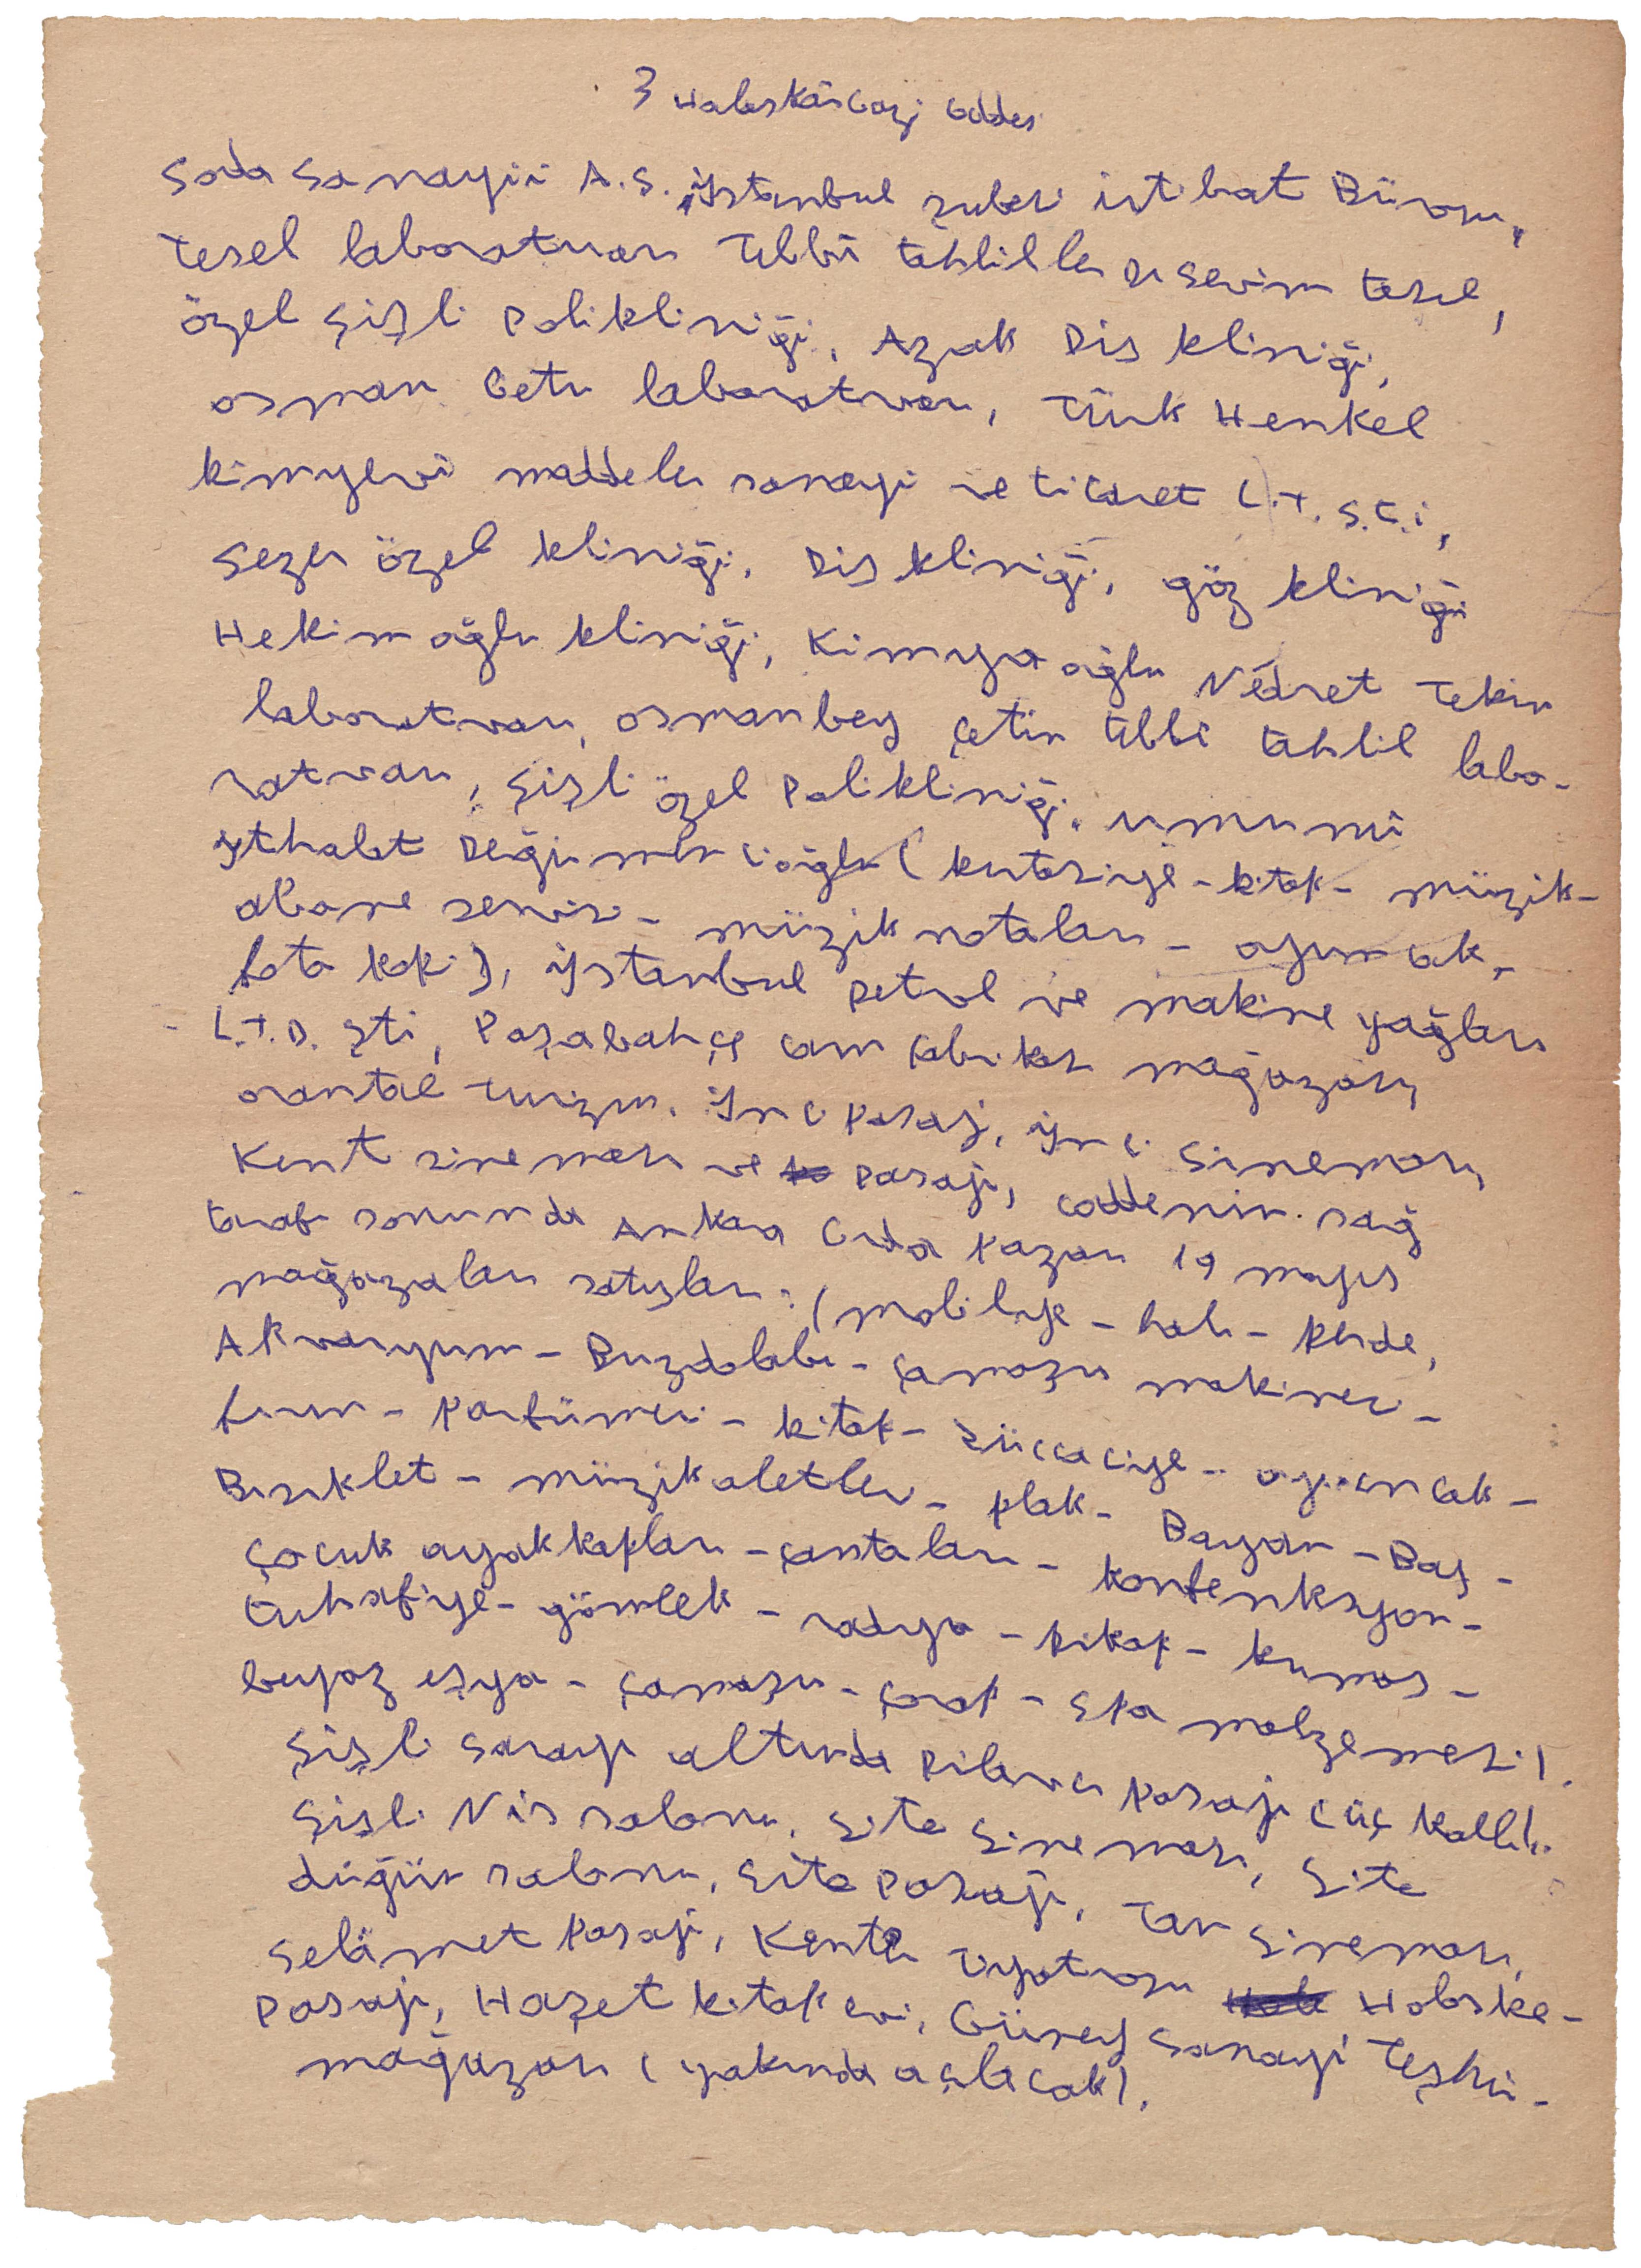 3 Halaskârgazi Caddesi
Soda Sanayii A.Ş. İstanbul şubesi irtibat Bürosu,
Tesel laboratuarı Tıbbi tahliller Dr Sevim Tesel,
özel Şişli Polikliniği, Azak Diş kliniği,
osman Getu laboratuarı, Türk Henkel
kimyevi maddeler sanayi ve ticaret L.T. Ş.T.i,
Sezer özel kliniği, Diş kliniği, göz kliniği
Hekimoğlu kliniği, Kimyaoğlu Nedret Tekin
laboratuarı, osmanbey çetin tıbbi tahlil labo-
ratuarı, Şişli özel Polikliniği, umumi
ithalat Değirmencioğlu (kırtasiye - kitap - müzik -
abone servisi - müzik notaları - oyuncak -
foto kopi), istanbul petrol ve makine yağları
L.T.D. Şti, Paşabahçe cam fabrikası mağazası,
orantal turizm. İnci pasajı, inci Sineması,
Kent sineması ve Pasajı, caddenin sağ
tarafı sonunda Ankara Gıda Pazarı 19 mayıs
mağazaları satışları: (mobilye - halı - perde,
Akvaryum - Buzdolabı - çamaşır makinesi -
fırın - parfümeri - kitap - züccaciye - oyuncak -
Bisiklet - müzik aletleri - plak - Bayan - Bay -
çocuk ayakkapları - çantaları - konfenksyon -
tuhafiye - gömlek - radyo - pikap - kumaş -
beyaz eşya - çamaşır - çorap - spor malzemesi).
Şişli Sarayı altında Dilaver Pasajı (üç katlı).
Şişli Nis salonu, Site Sineması, Site
düğün salonu, Site Pasajı, Tan Sineması,
Selâmet Pasajı, Kenter Tiyatrosu Halaska-
Pasajı, Haşet kitap evi, Güney Sanayi Teşhir-
mağazası (yakında açılacak).